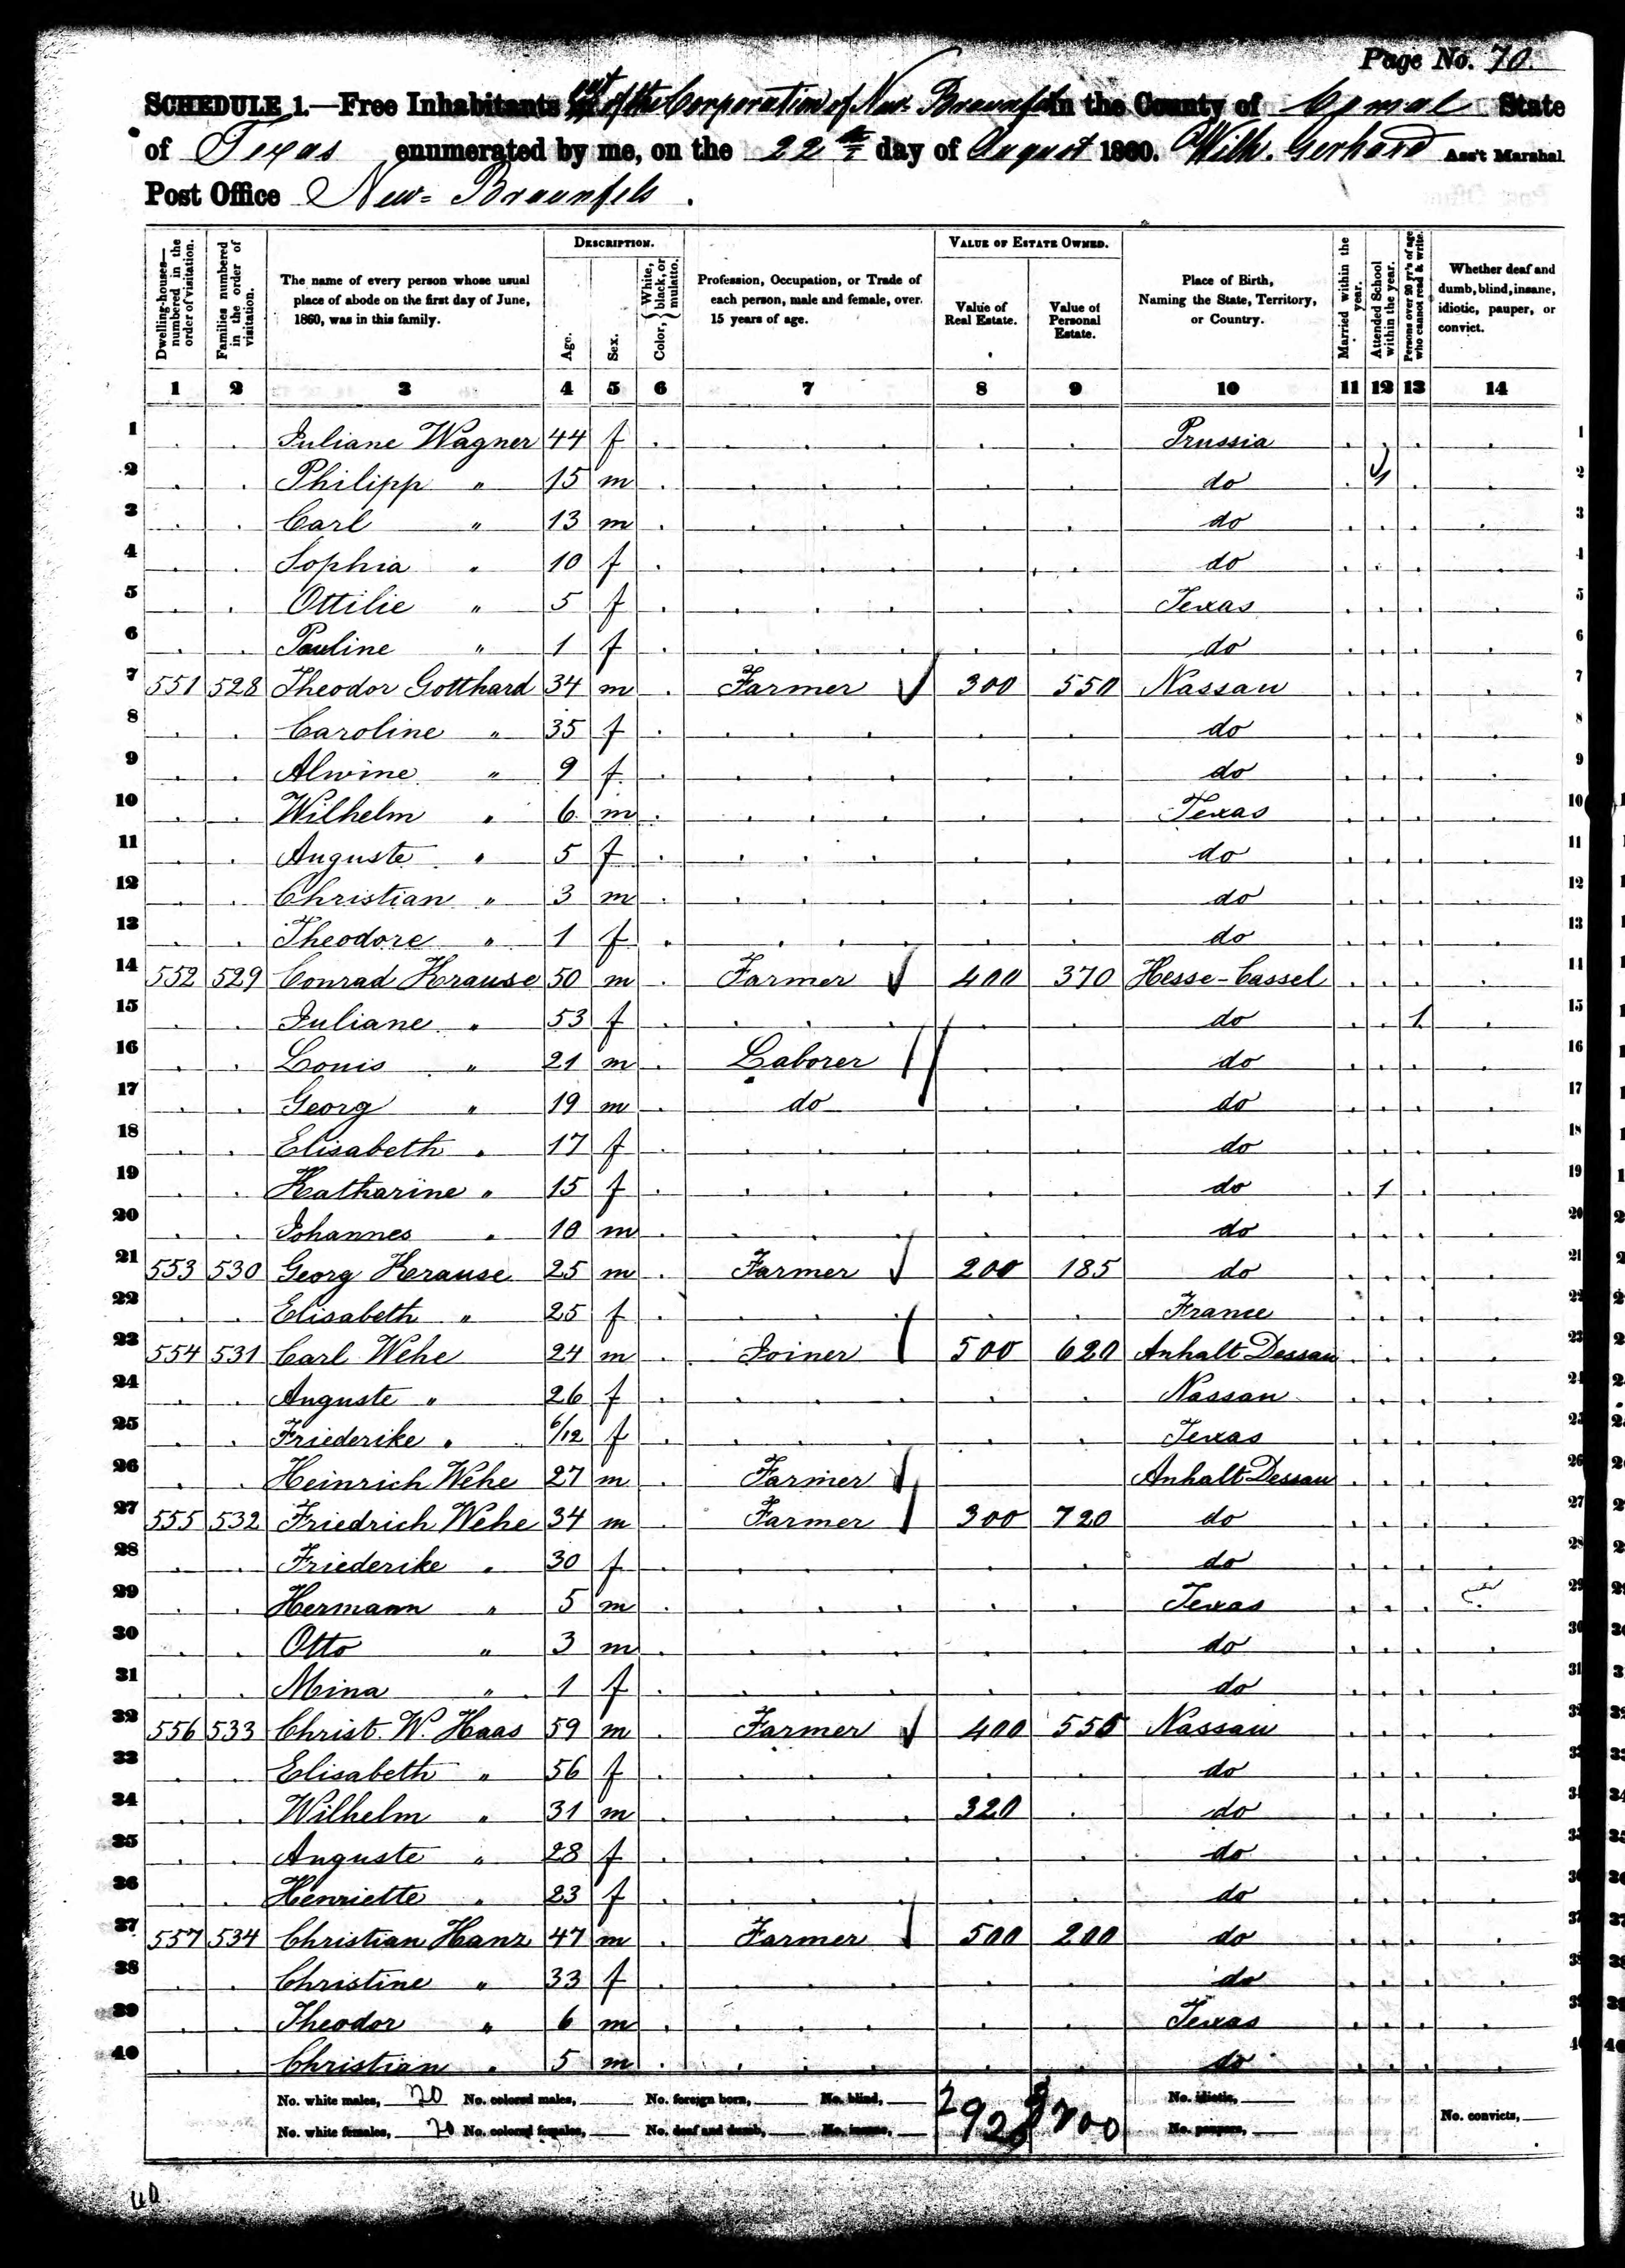 Page No. 70.
SCHEDULE 1.—Free Inhabitants out of the Corporation of New-Braunfels in the County of Comal State
of Texas enumerated by me, on the 22th day of August 1860. Wilh. Gerhard Ass't Marshal
Post Office New-Braunfels.
Dwelling-houses—numbered in the order of visitation.
Families numbered in the order of visitation.
The name of every person whose usual place of abode on the first day of June, 1860, was in this family.
DESCRIPTION.
Age.
Sex.
Color, { White, black, or mulatto.
Profession, Occupation, or Trade of each person, male and female, over 15 years of age.
VALUE OF ESTATE OWNED.
Value of Real Estate.
Value of Personal Estate.
Place of Birth, Naming the State, Territory, or Country.
Married within the year.
Attended School within the year.
Persons over 20 yr's of age who cannot read & write.
Whether deaf and dumb, blind, insane, idiotic, pauper, or convict.
1 2 3 4 5 6 7 8 9 10 11 12 13 14
1 Juliane Wagner 44 f Prussia 1
2 Philipp " 15 m do 1 2
3 Carl " 13 m do 3
4 Sophia " 10 f do 4
5 Ottilie " 5 f Texas 5
6 Pauline " 1 f do 6
7 551 528 Theodor Gotthard 34 m Farmer 300 550 Nassau 7
8 Caroline " 35 f do 8
9 Alwine " 9 f do 9
10 Wilhelm " 6 m Texas 10
11 Auguste " 5 f do 11
12 Christian " 3 m do 12
13 Theodore " 1 f do 13
14 552 529 Conrad Krause 50 m Farmer 400 370 Hesse-Cassel 14
15 Juliane " 53 f do 1 15
16 Louis " 21 m Laborer do 16
17 Georg " 19 m do do 17
18 Elisabeth " 17 f do 18
19 Katharine " 15 f do 1 19
20 Johannes " 10 m do 20
21 553 530 Georg Krause 25 m Farmer 200 185 do 21
22 Elisabeth " 25 f France 22
23 554 531 Carl Wehe 24 m Joiner 500 620 Anhalt Dessau 23
24 Auguste " 26 f Nassau 24
25 Friederike " 6/12 f Texas 25
26 Heinrich Wehe 27 m Farmer Anhalt Dessau 26
27 555 532 Friedrich Wehe 34 m Farmer 300 720 do 27
28 Friederike " 30 f do 28
29 Hermann " 5 m Texas 29
30 Otto " 3 m do 30
31 Mina " 1 f do 31
32 556 533 Christ. W. Haas 59 m Farmer 400 555 Nassau
33 Elisabeth " 56 f do
34 Wilhelm " 31 m 320 do
35 Auguste " 28 f do
36 Henriette " 23 f do
37 557 534 Christian Hanz 47 m Farmer 500 200 do
38 Christine " 33 f do
39 Theodor " 6 m Texas
40 Christian " 5 m do
No. white males, 20 No. colored males, No. foreign born, No. blind, No. idiotic,
No. white females, 20 No. colored females, No. deaf and dumb, No. insane, No. paupers, No. convicts,